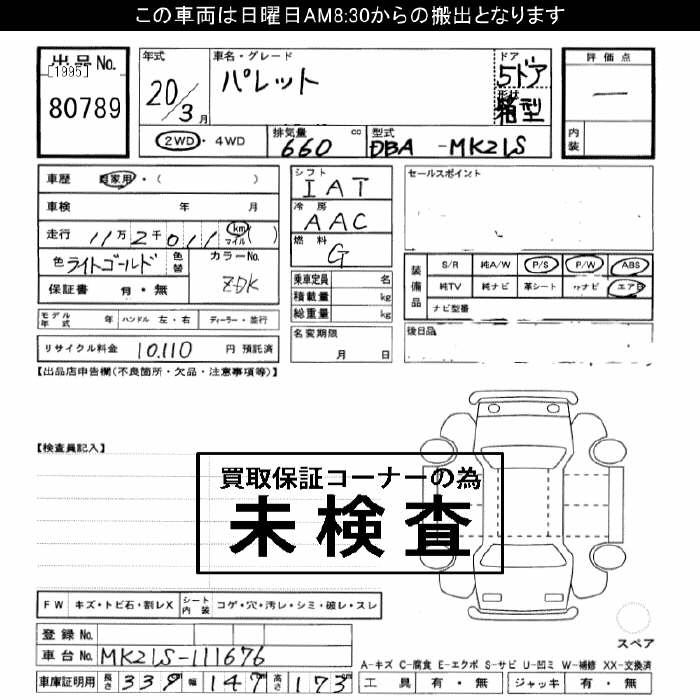 この車両は日曜日AM8:30からの搬出となります
出品No.
[1995]
80789
年式
20/3月
車名・グレード
パレット
ドア
5ドア
形状
箱型
評価点
—
内装
2WD・4WD
排気量
660 cc
型式
DBA-MK21S
車歴 自家用・( )
車検 年 月
走行 11万2千011 (km マイル)
色 ライトゴールド 色替
カラーNo.
ZDK
保証書 有・無
シフト
IAT
冷房
AAC
燃料
G
乗車定員 名
積載量 kg
総重量 kg
名変期限
月 日
セールスポイント
装備品
S/R 純A/W P/S P/W ABS
純TV 純ナビ 革シート ナビ エアB
ナビ型番
後日品
モデル年式 年 ハンドル 左・右 ディーラー・並行
リサイクル料金 10,110 円 預託済
【出品店申告欄(不良箇所・欠品・注意事項等)】
【検査員記入】
買取保証コーナーの為
未検査
FW キズ・トビ石・割レX シート内装 コゲ・穴・汚レ・シミ・破レ・スレ
登録No.
車台No. MK21S-111676
車庫証明用 長さ 339 幅 147 高さ 173
スペア
A-キズ C-腐食 E-エクボ S-サビ U-凹ミ W-補修 XX-交換済
工具 有・無 ジャッキ 有・無